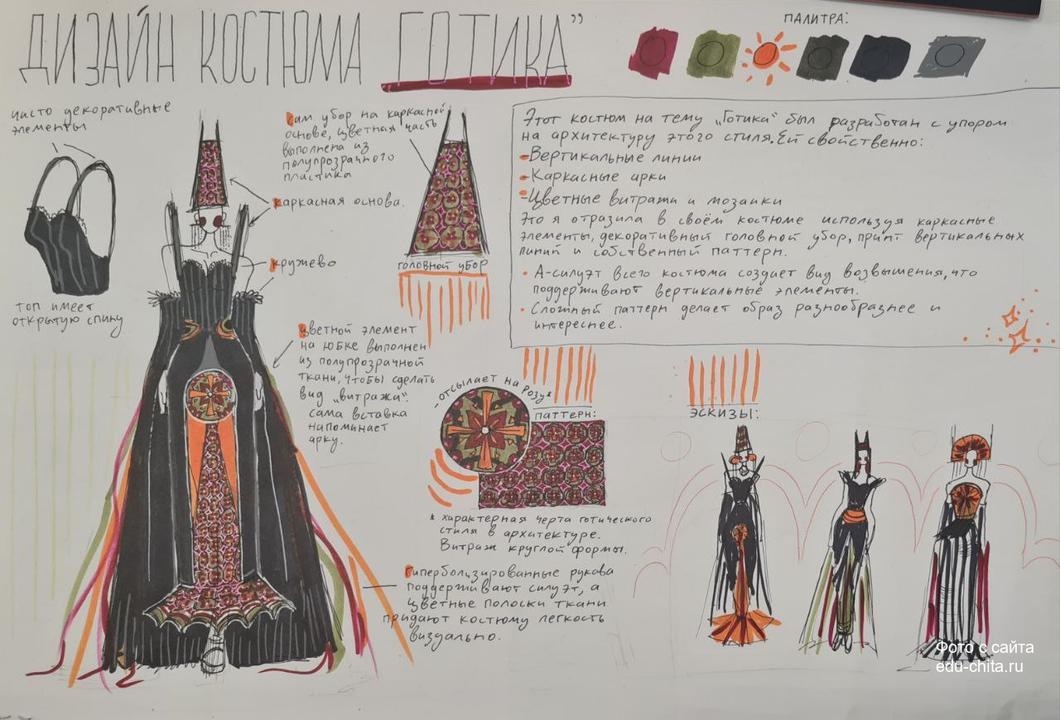 ДИЗАЙН КОСТЮМА „ГОТИКА”
ПАЛИТРА:
чисто декоративные
элементы
топ имеет
открытую спину
Сам убор на каркасной
основе, цветная часть
выполнена из
полупрозрачного
пластика
каркасная основа.
кружево
головной убор
Цветной элемент
на юбке выполнен
из полупрозрачной
ткани, чтобы сделать
вид „витража”.
сама вставка
напоминает
арку.
Этот костюм на тему „Готика” был разработан с упором
на архитектуру этого стиля. Ей свойственно:
-Вертикальные линии
-Каркасные арки
-Цветные витражи и мозаики
Это я отразила в своём костюме используя каркасные
элементы, декоративный головной убор, принт вертикальных
линий и собственный паттерн.
• А-силуэт всего костюма создает вид возвышения, что
поддерживают вертикальные элементы.
• Сложный паттерн делает образ разнообразнее и
интереснее.
-отсылает на Розу*
паттерн:
* характерная черта готического
стиля в архитектуре.
Витраж круглой формы.
Гиперболизированные рукава
поддерживают силуэт, а
цветные полоски ткани
придают костюму легкость
визуально.
эскизы:
Фото с сайта
edu-chita.ru